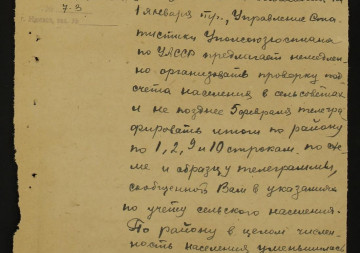 7.3
1 января т.г. Управление Ста-
тистики Уполсоюзгосплана
по УАССР предлагает немедлен-
но организовать проверку под-
счета населения в сельсоветах
и не позднее 5 февраля телегра-
фировать итоги по району
по 1, 2, 9 и 10 строкам по схе-
ме и образцу телеграммы,
сообщенной Вам в указаниях
по учету сельского населения.
По району в целом числен-
ность населения уменьшилась